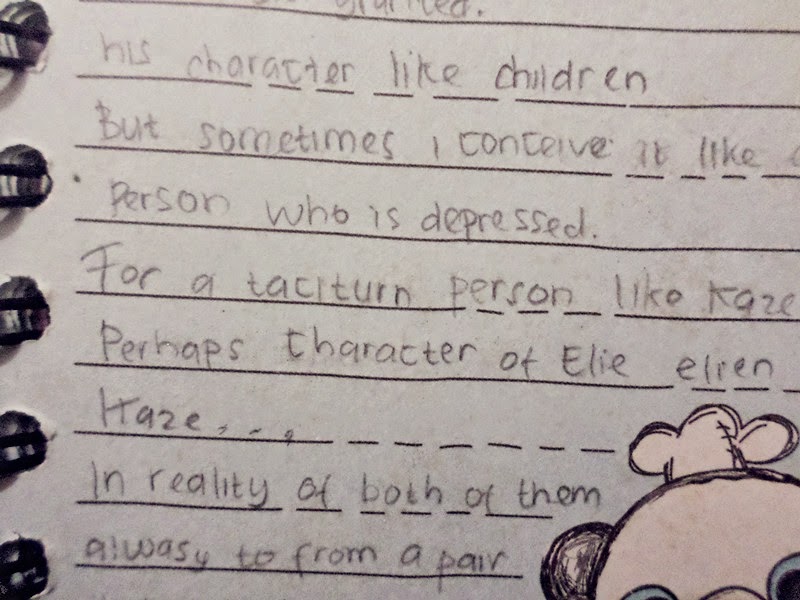 granted.
his character like children
But sometimes i conceive it like
person who is depressed.
For a taciturn person like Kaze
Perhaps character of Elie elien
Kaze . . ,
In reality of both of them
alwasy to from a pair